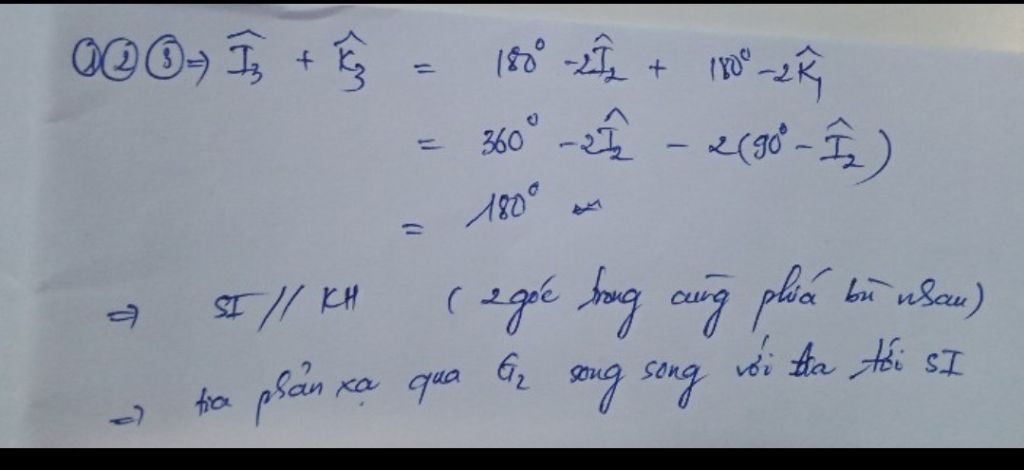 ①②③⇒ Î₃ + K̂₃ = 180° - 2Î₂ + 180° - 2K̂₁
= 360° - 2Î₂ - 2(90° - Î₂)
= 180°
⇒ SI // KH (2 góc trong cùng phía bù nhau)
⇒ tia phản xạ qua G₂ song song với tia tới SI